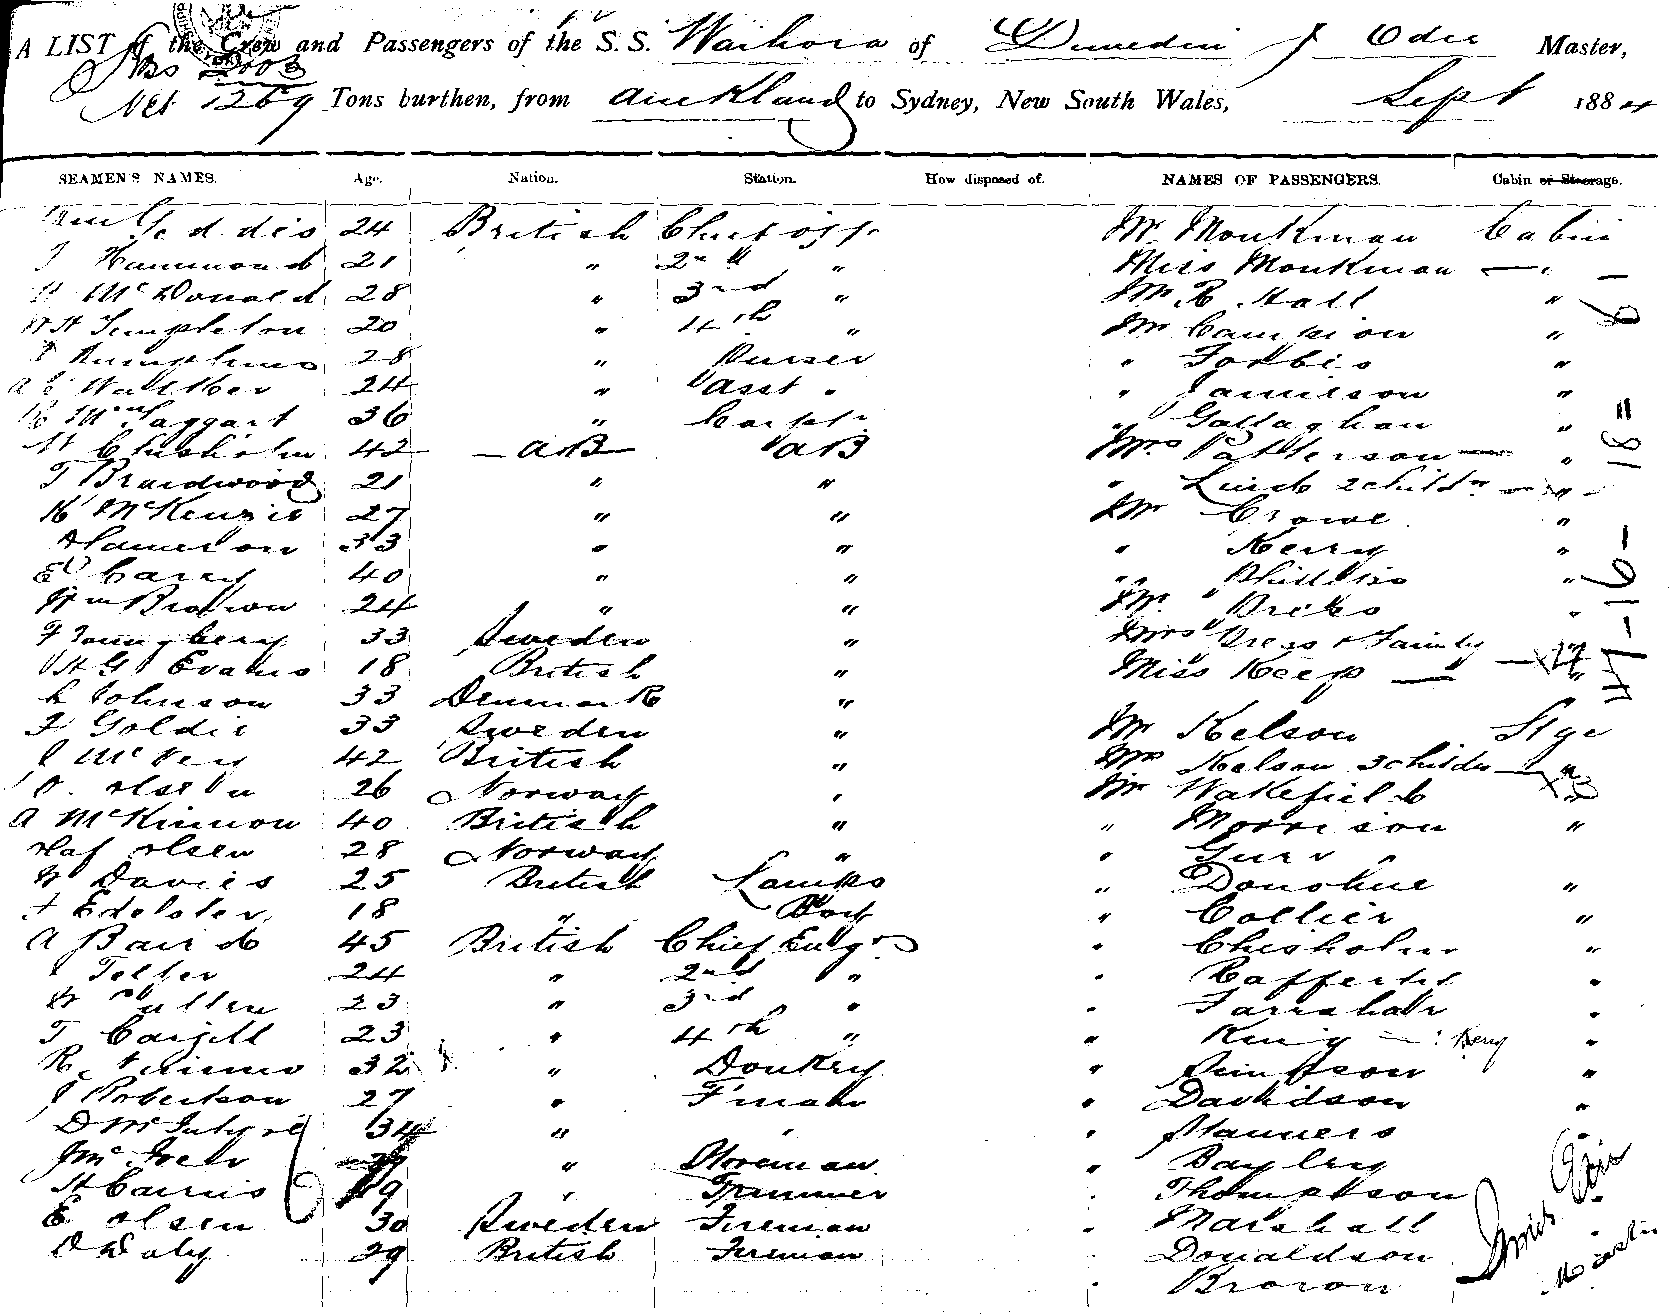 A LIST of the Crew and Passengers of the S.S. Waihora of Dunedin J Odee Master,
2003
Net 1269 Tons burthen, from Auckland to Sydney, New South Wales, Sept 1884
SEAMEN'S NAMES. Age. Nation. Station. How disposed of. NAMES OF PASSENGERS. Cabin or Steerage.
Geddis 24 British Chief off. Mr Monkman Cabin
J Hammond 21 " 2nd " Miss Monkman — " —
McDonald 28 " 3rd " Mr R Hall "
W H Templeton 20 " 4th " Mr Campion "
Humphries 28 " Purser " Forbes "
A E Walker 24 " Asst " " Jamieson "
McTaggart 36 " Carptr " Gallaghan "
W Chisholm 42 — AB — AB Mrs Patterson — "
T Braidwood 21 " " " 2 childn "
K McKenzie 27 " " Mr Crowe "
A Cameron 33 " " " Kerry "
E Carry 40 " " " Phillips "
Wm Brown 24 " " Mr "
F Youngberg 33 Sweden " Mrs & Family
H G Evans 18 British " Miss Keep — "
L Johnson 33 Denmark "
F Goldie 33 Sweden " Mr Kelson Stge
J McVey 42 British " Mrs Kelson 3 childn — "
O. Olsen 26 Norway " Mr Wakefield "
A McKinnon 40 British " " Morrison "
Olaf Olsen 28 Norway " " Gurr "
W Davies 25 British Lamps " Donohue "
18 " Boy " Collier "
A Baird 45 British Chief Engr " Chisholm "
Telfer 24 " 2nd " " Rafferty "
W Pullen 23 " 3rd " "
T Cargill 23 " 4th " " King — "
R 32 " Donkey " Simpson "
J Robertson 27 " F'man " Davidson "
D McIntyre 34 " " " Manners "
" Storeman " Bayley
H Cairns 19 " Trimmer " Thompson
E Olsen 30 Sweden Fireman " Marshall "
D Daly 29 British Fireman " Donaldson
" Brown
47 — 16 — 18 = 6